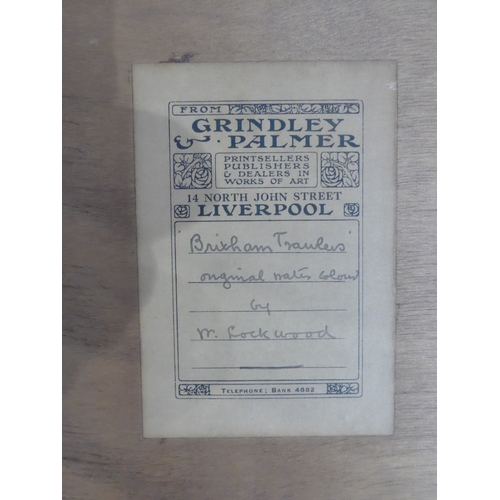 FROM
GRINDLEY
& PALMER
PRINTSELLERS
PUBLISHERS
& DEALERS IN
WORKS OF ART
14 NORTH JOHN STREET
LIVERPOOL
"Brixham Trawlers"
original water colour
by
W. Lockwood
TELEPHONE: BANK 4882